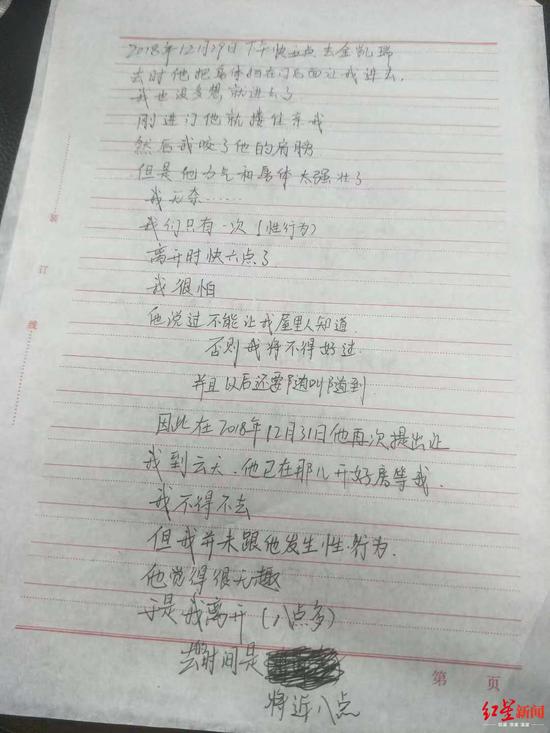 2018年12月29日下午快五点去金凯瑞
去时他把身体掩在门后面让我进去.
我也没多想就进去了
刚进门他就搂住亲我
然后我咬了他的肩膀
但是他力气和身体太强壮了
我无奈……
我们只有一次(性行为)
离开时快六点了
我很怕
他说过不能让我屋里人知道
否则我将不得好过
并且以后还要随叫随到
因此在2018年12月31日他再次提出让
我到云天.他已在那儿开好房等我.
我不得不去
但我并未跟他发生性行为.
他觉得很无趣
于是我离开(八点多)
去时间是
将近八点
装
订
线
第 页
红星新闻